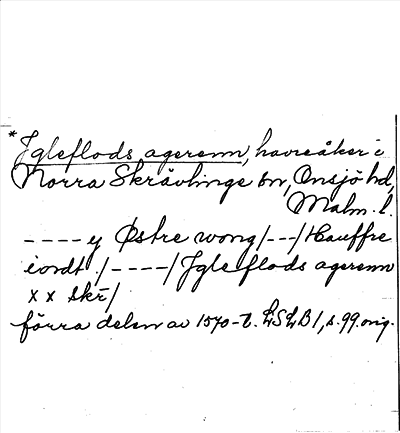 *Jgleflods agerenn, havreåker i
Norra Skrävlinge sn, Onsjö hd,
Malm. l.
---- y Østre wong/---/Hauffre
iordt:/----/Jgleflods agerenn
x x skr/
förra delen av 1570-t. LSLB 1, s. 99. orig.